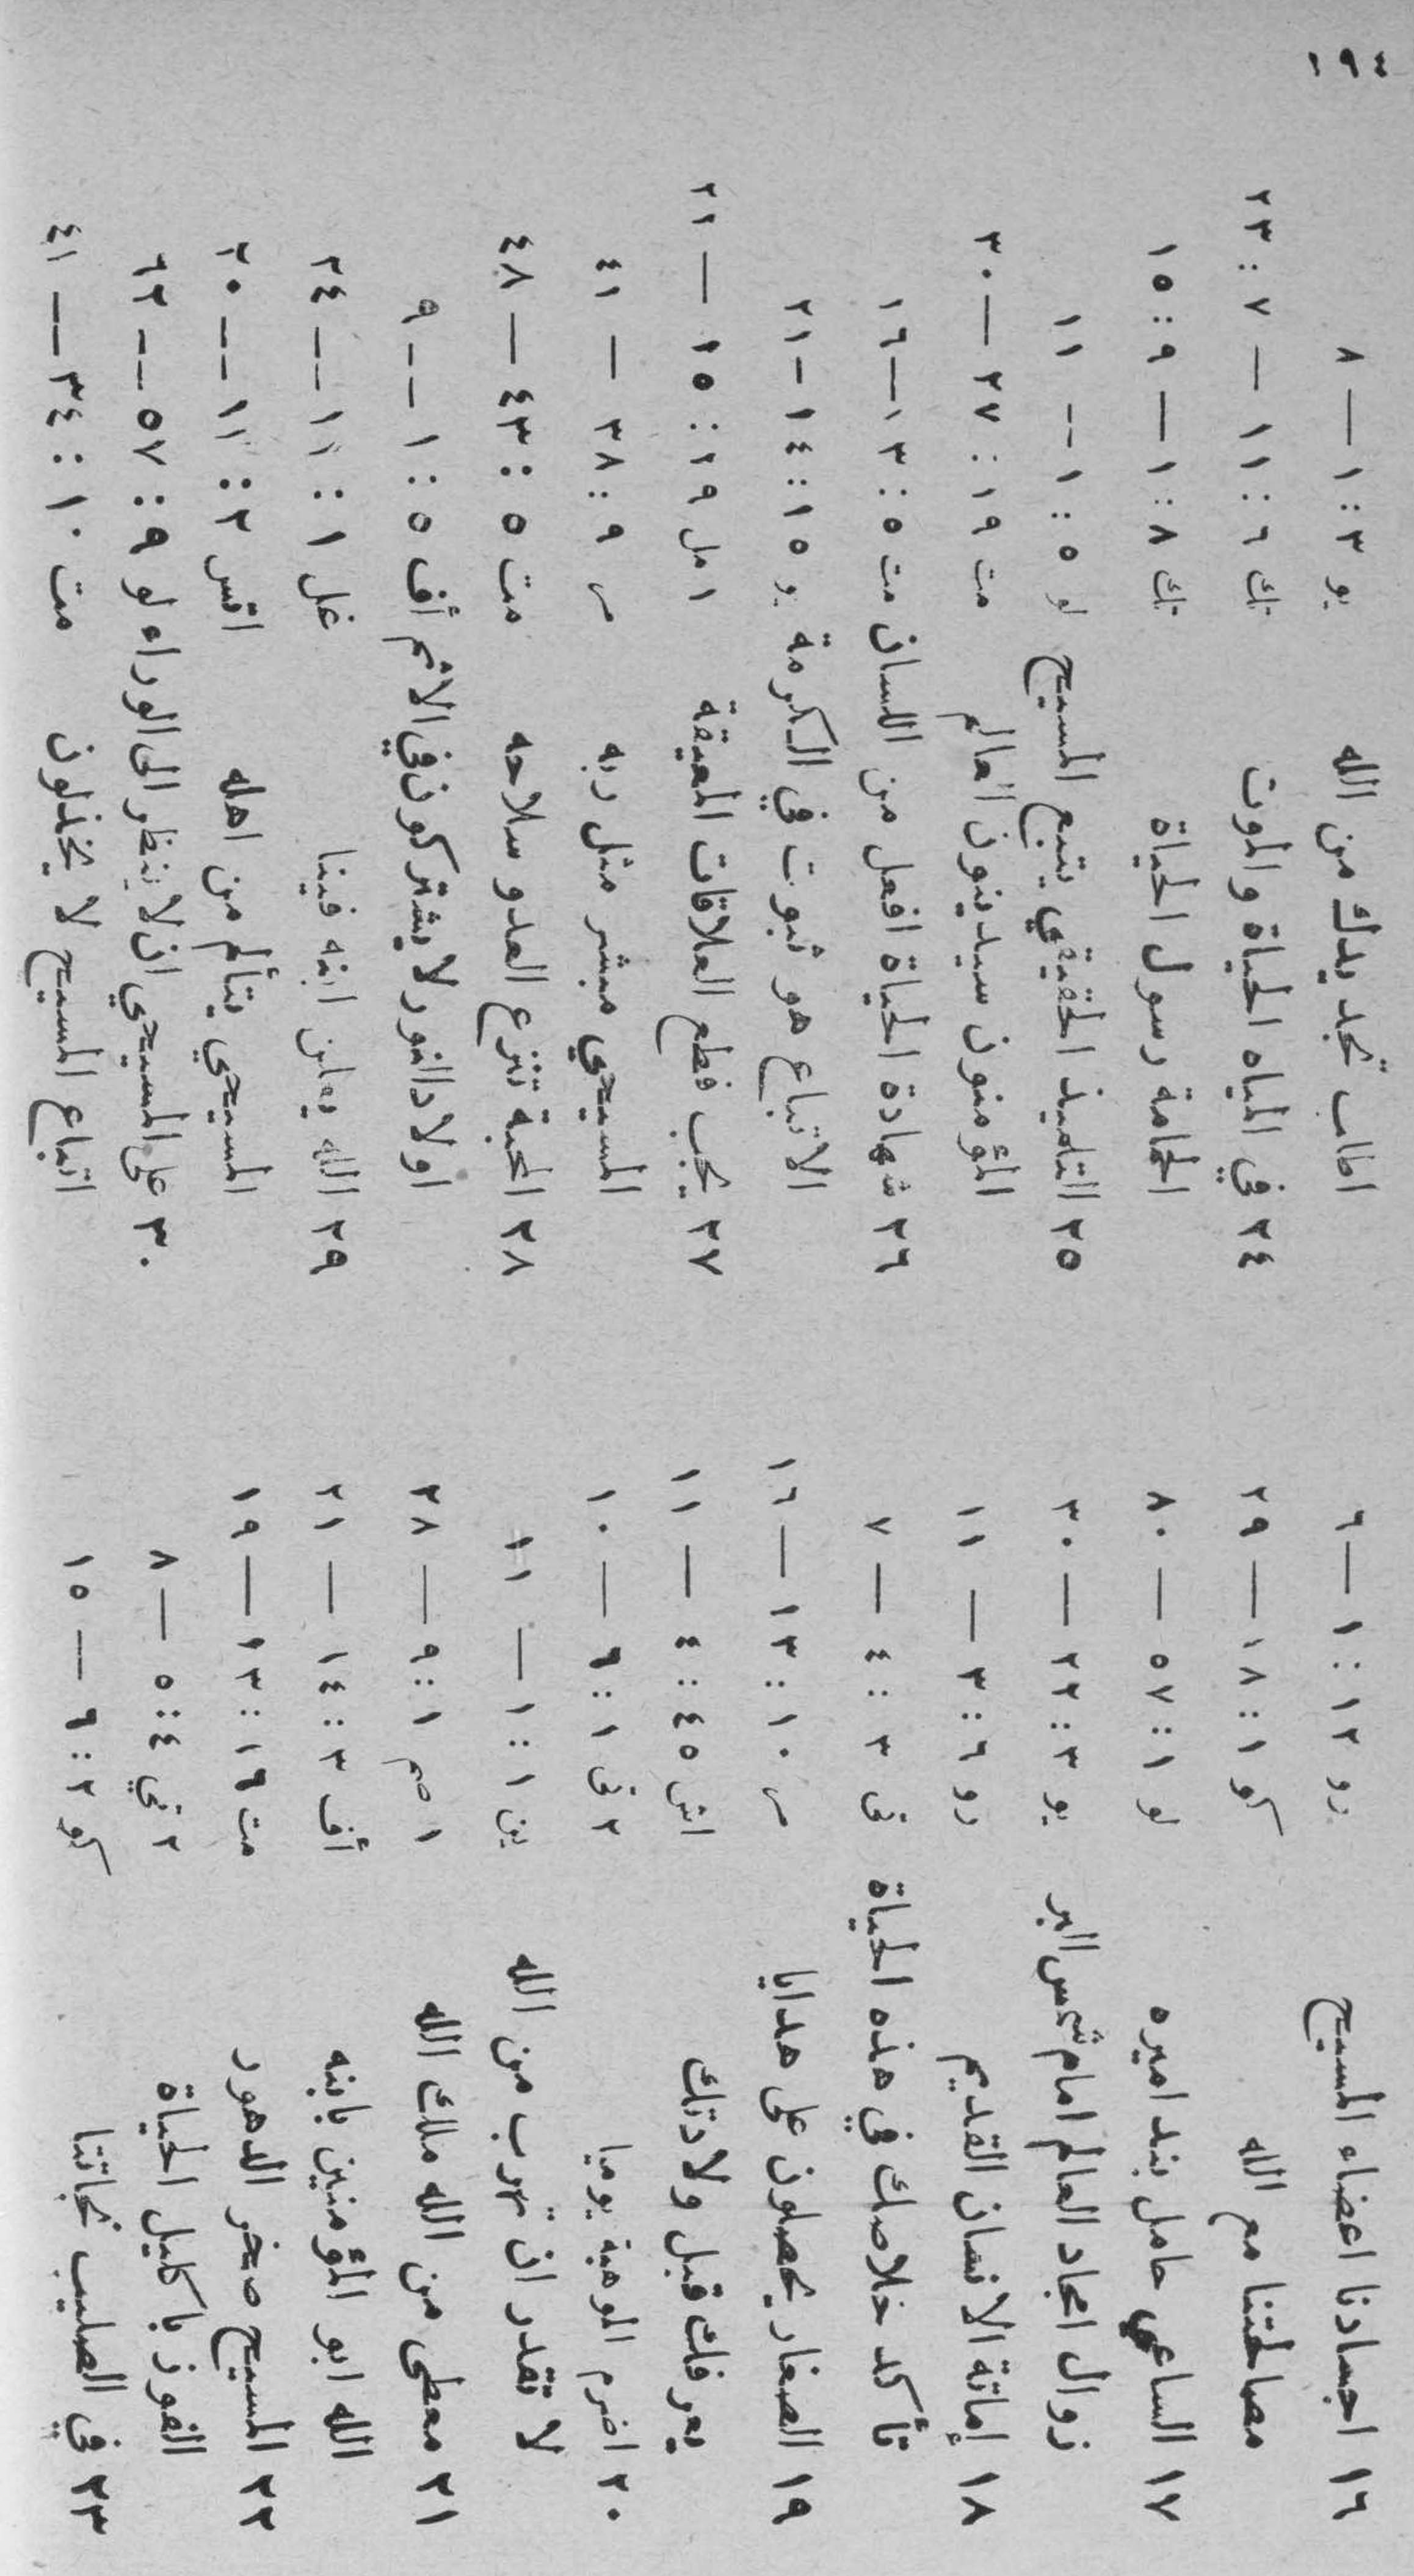 ١٩٤
١٦ اجسادنا اعضاء المسيح رو ١٢ : ١ — ٦
مصالحتنا مع الله كو ١ : ١٨ — ٢٩
١٧ الساعي حامل بند اميره لو ١ : ٥٧ — ٨٠
زوال امجاد العالم امام شمس البر يو ٣ : ٢٢ — ٣٠
١٨ إماتة الانسان القديم رو ٦ : ٣ — ١١
تأكد خلاصك في هذه الحياة تى ٣ : ٤ — ٧
١٩ الصغار يحصلون على هدايا مر ١٠ : ١٣ — ١٦
يعرفك قبل ولادتك اش ٤٥ : ٤ — ١١
٢٠ اضرم الموهبة يوميا ٢ تى ١ : ٦ — ١٠
لا تقدر ان تهرب من الله ين ١ : ١ — ١١
٢١ معطى من الله ملك الله ١ صم ١ : ٩ — ٢٨
الله ابو المؤمنين بابنه أف ٣ : ١٤ — ٢١
٢٢ المسيح صخر الدهور مت ١٦ : ١٣ — ١٩
الفوز باكليل الحياة ٢ تي ٤ : ٥ — ٨
٢٣ في الصليب نجاتنا كو ٢ : ٦ — ١٥
اطلب تجد يدك من الله يو ٣ : ١ — ٨
٢٤ في المياه الحياة والموت تك ٦ : ١١ — ٧ : ٢٣
الحمامة رسول الحياة تك ٨ : ١ — ٩ : ١٥
٢٥ التلميذ الحقيقي يتبع المسيح لو ٥ : ١ -- ١١
المؤمنون سيدينون العالم مت ١٩ : ٢٧ — ٣٠
٢٦ شهادة الحياة افعل من اللسان مت ٥ : ١٣ — ١٦
الاتباع هو ثبوت في الكرمة يو ١٥ : ١٤ - ٢١
٢٧ يجب قطع العلاقات المعيقة ١ مل ١٩ : ١٥ — ٢١
المسيحي مبشر مثل ربه مر ٩ : ٣٨ — ٤١
٢٨ المحبة تنزع العدو سلاحه مت ٥ : ٤٣ — ٤٨
اولاد النور لا يشتركون في الاثم أف ٥ : ١ -- ٩
٢٩ الله يعلن ابنه فينا غل ١ : ١١ -- ٢٤
المسيحي يتألم من اهله اتس ٢ : ١١ -- ٢٠
٣٠ على المسيحي ان لا ينظر الى الوراء لو ٩ : ٥٧ -- ٦٢
اتباع المسيح لا يخذلون مت ١٠ : ٣٤ -- ٤١